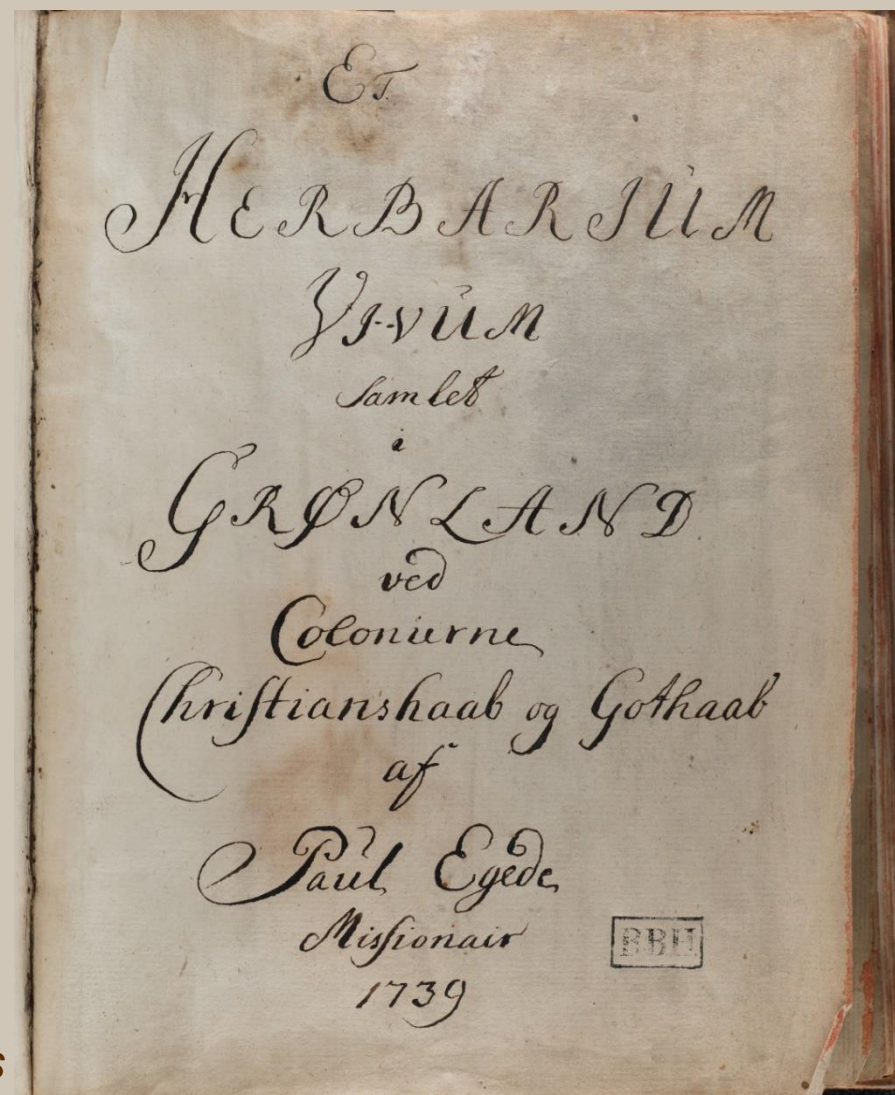 Et.
HERBARIUM
VIVUM
samlet
i
GRØNLAND
ved
Colonierne
Christianshaab og Gothaab
af
Paul Egede
Missionair
1739
BBH
s